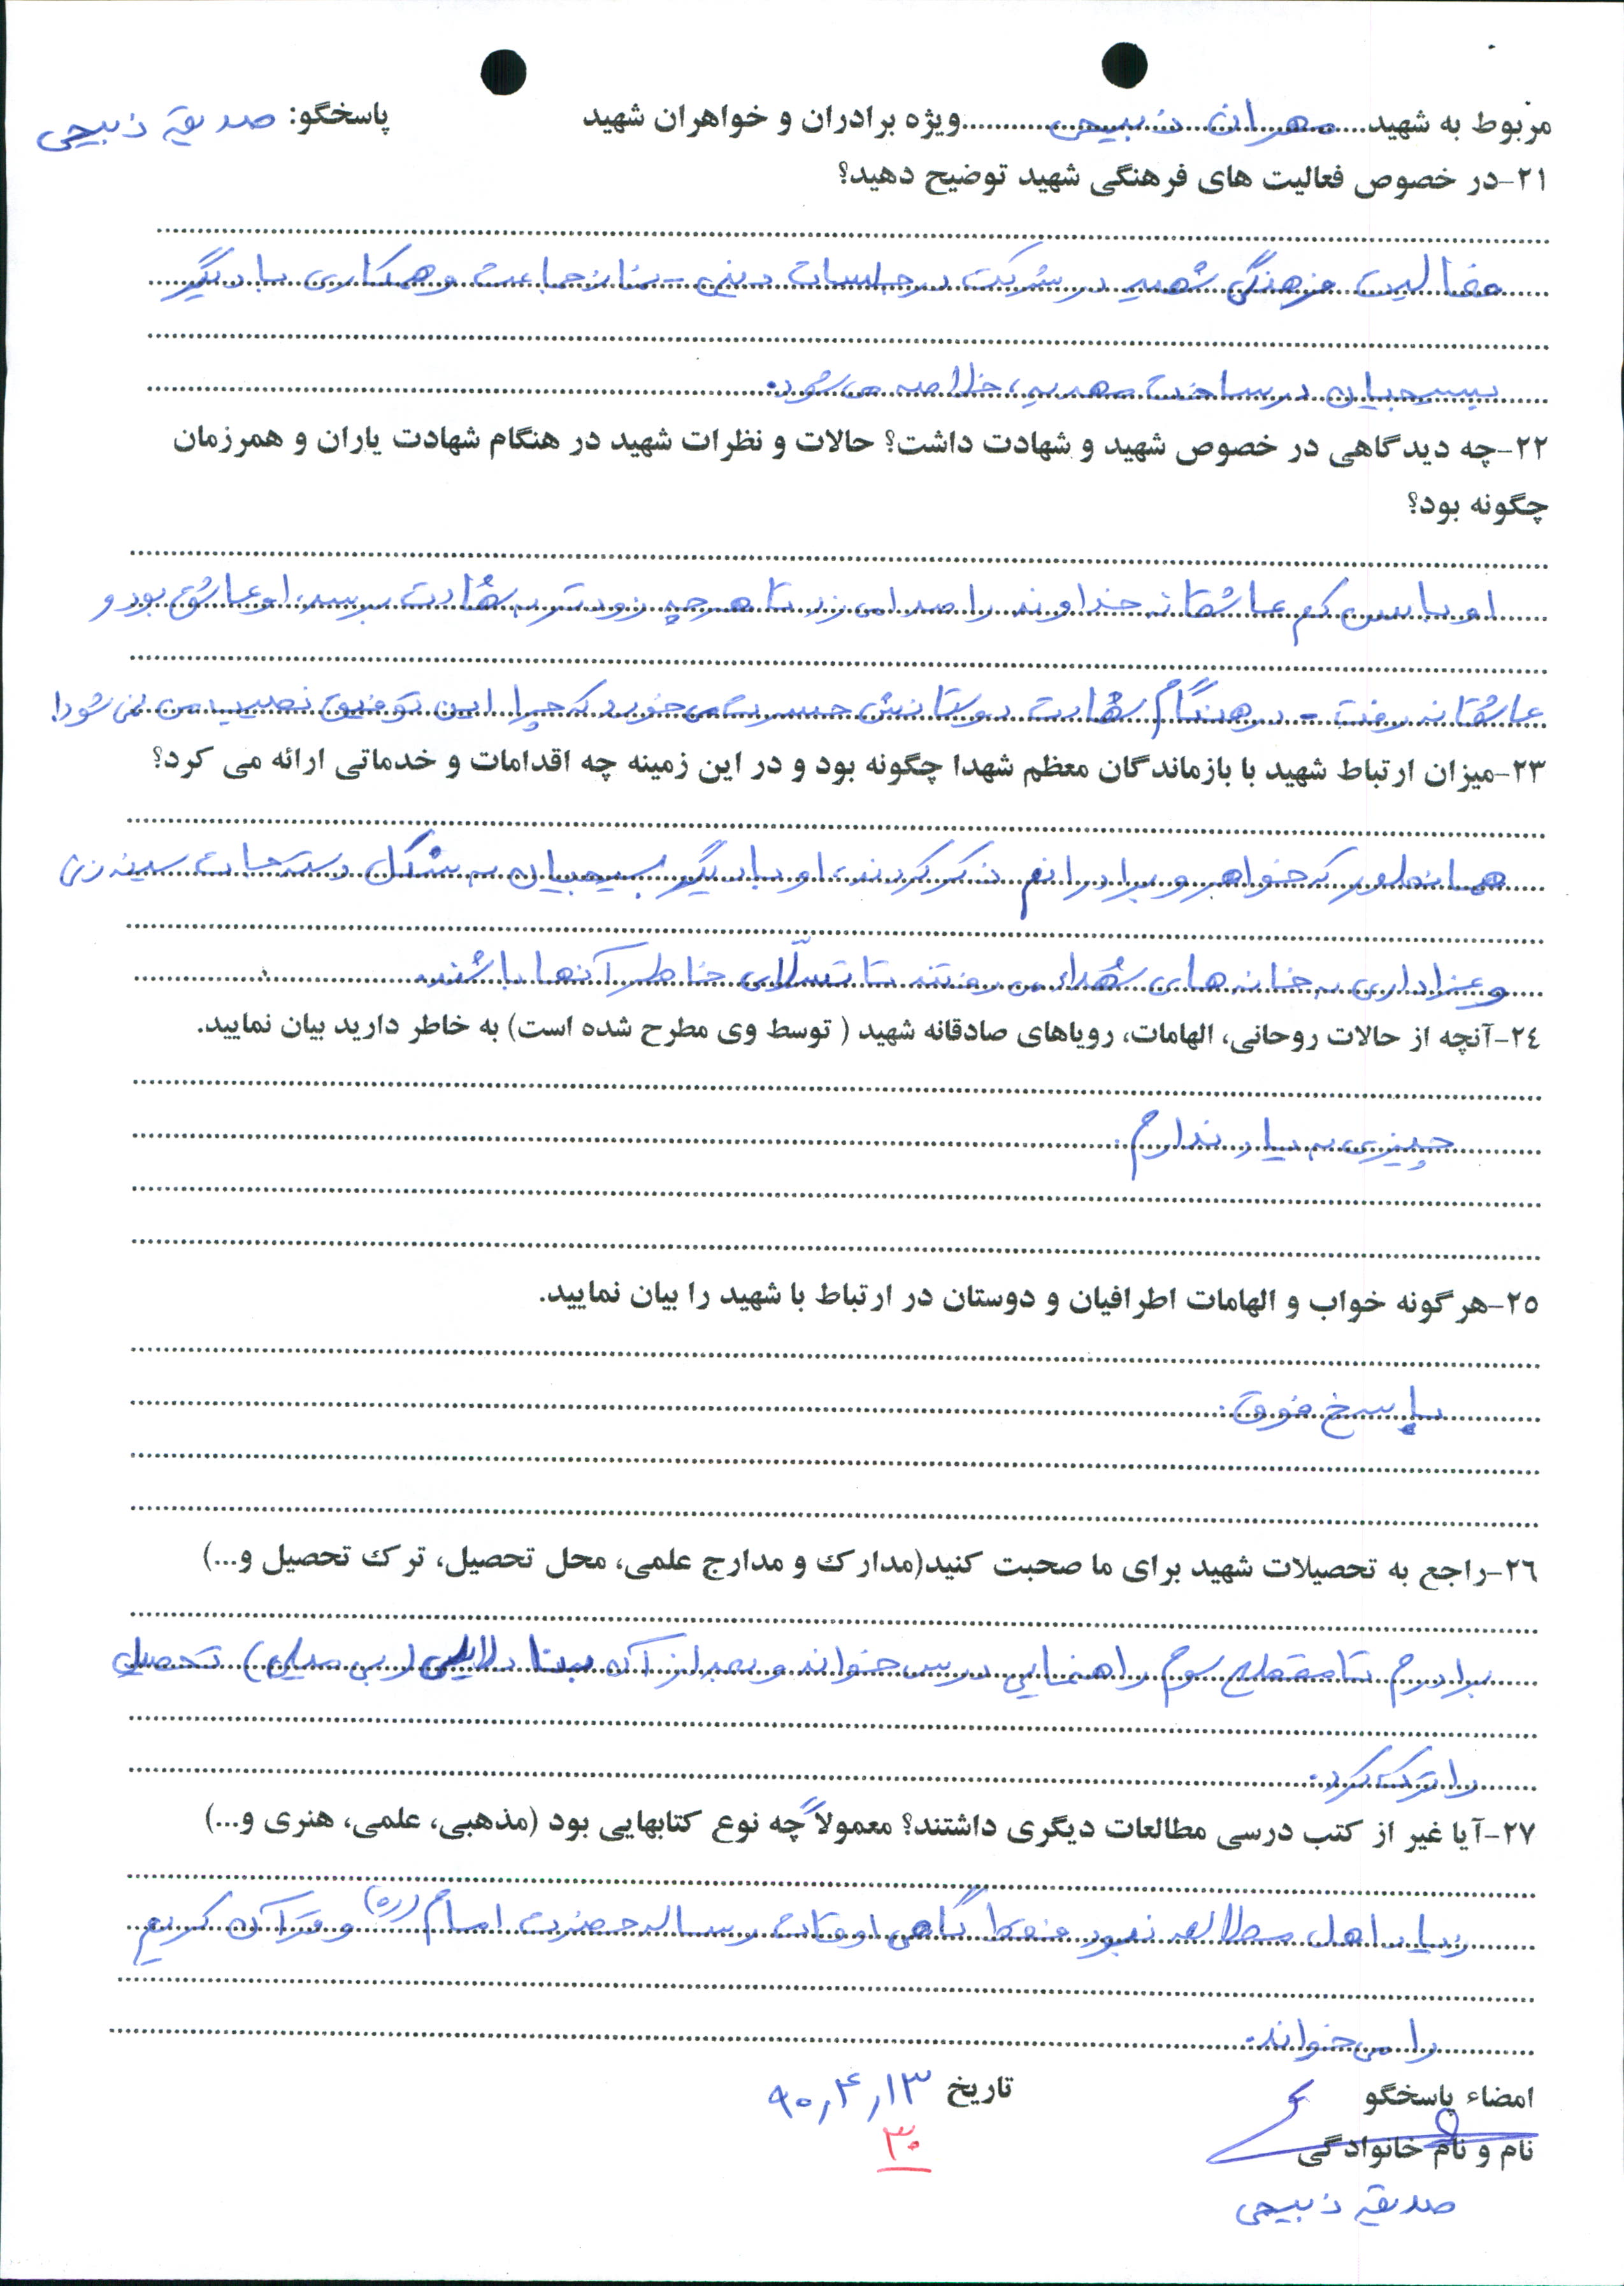 مربوط به شهید مهران ذبیحی ویژه برادران و خواهران شهید پاسخگو: صدیقه ذبیحی
۲۱-در خصوص فعالیت های فرهنگی شهید توضیح دهید؟
فعالیت فرهنگی شهید در شرکت در جلسات دینی - نماز جماعت و همکاری با دیگر
بسیجیان در ساخت مهدیه، خلاصه می شود.
۲۲-چه دیدگاهی در خصوص شهید و شهادت داشت؟ حالات و نظرات شهید در هنگام شهادت یاران و همرزمان
چگونه بود؟
او با سن کم عاشقانه خداوند را صدا می زد تا هر چه زودتر به شهادت برسد، او عاشق بود و
عاشقانه رفت - در هنگام شهادت دوستانش حسرت می خورد که چرا این توفیق نصیب من نمی شود!
۲۳-میزان ارتباط شهید با بازماندگان معظم شهدا چگونه بود و در این زمینه چه اقدامات و خدماتی ارائه می کرد؟
همانطور که خواهر و برادرانم ذکر کردند، او با دیگر بسیجیان به شکل دسته جات سینه زنی
و عزاداری به خانه های شهدا می رفتند تا تسلّای خاطر آنها باشند.
۲٤-آنچه از حالات روحانی، الهامات، رویاهای صادقانه شهید ( توسط وی مطرح شده است) به خاطر دارید بیان نمایید.
چیزی به یاد ندارم.
۲۵-هر گونه خواب و الهامات اطرافیان و دوستان در ارتباط با شهید را بیان نمایید.
پاسخ فوق.
۲٦-راجع به تحصیلات شهید برای ما صحبت کنید(مدارک و مدارج علمی، محل تحصیل، ترک تحصیل و...)
برادرم تا مقطع سوم راهنمایی درس خواند و بعد از آن بنا به دلایلی (بی میلی) تحصیل
را ترک کرد.
۲۷-آیا غیر از کتب درسی مطالعات دیگری داشتند؟ معمولاً چه نوع کتابهایی بود (مذهبی، علمی، هنری و...)
زیاد اهل مطالعه نبود فقط گاهی اوقات رساله حضرت امام (ره) و قرآن کریم
را می خواند.
امضاء پاسخگو تاریخ ۹۰٫۴٫۱۳
نام و نام خانوادگی ۳۰
صدیقه ذبیحی